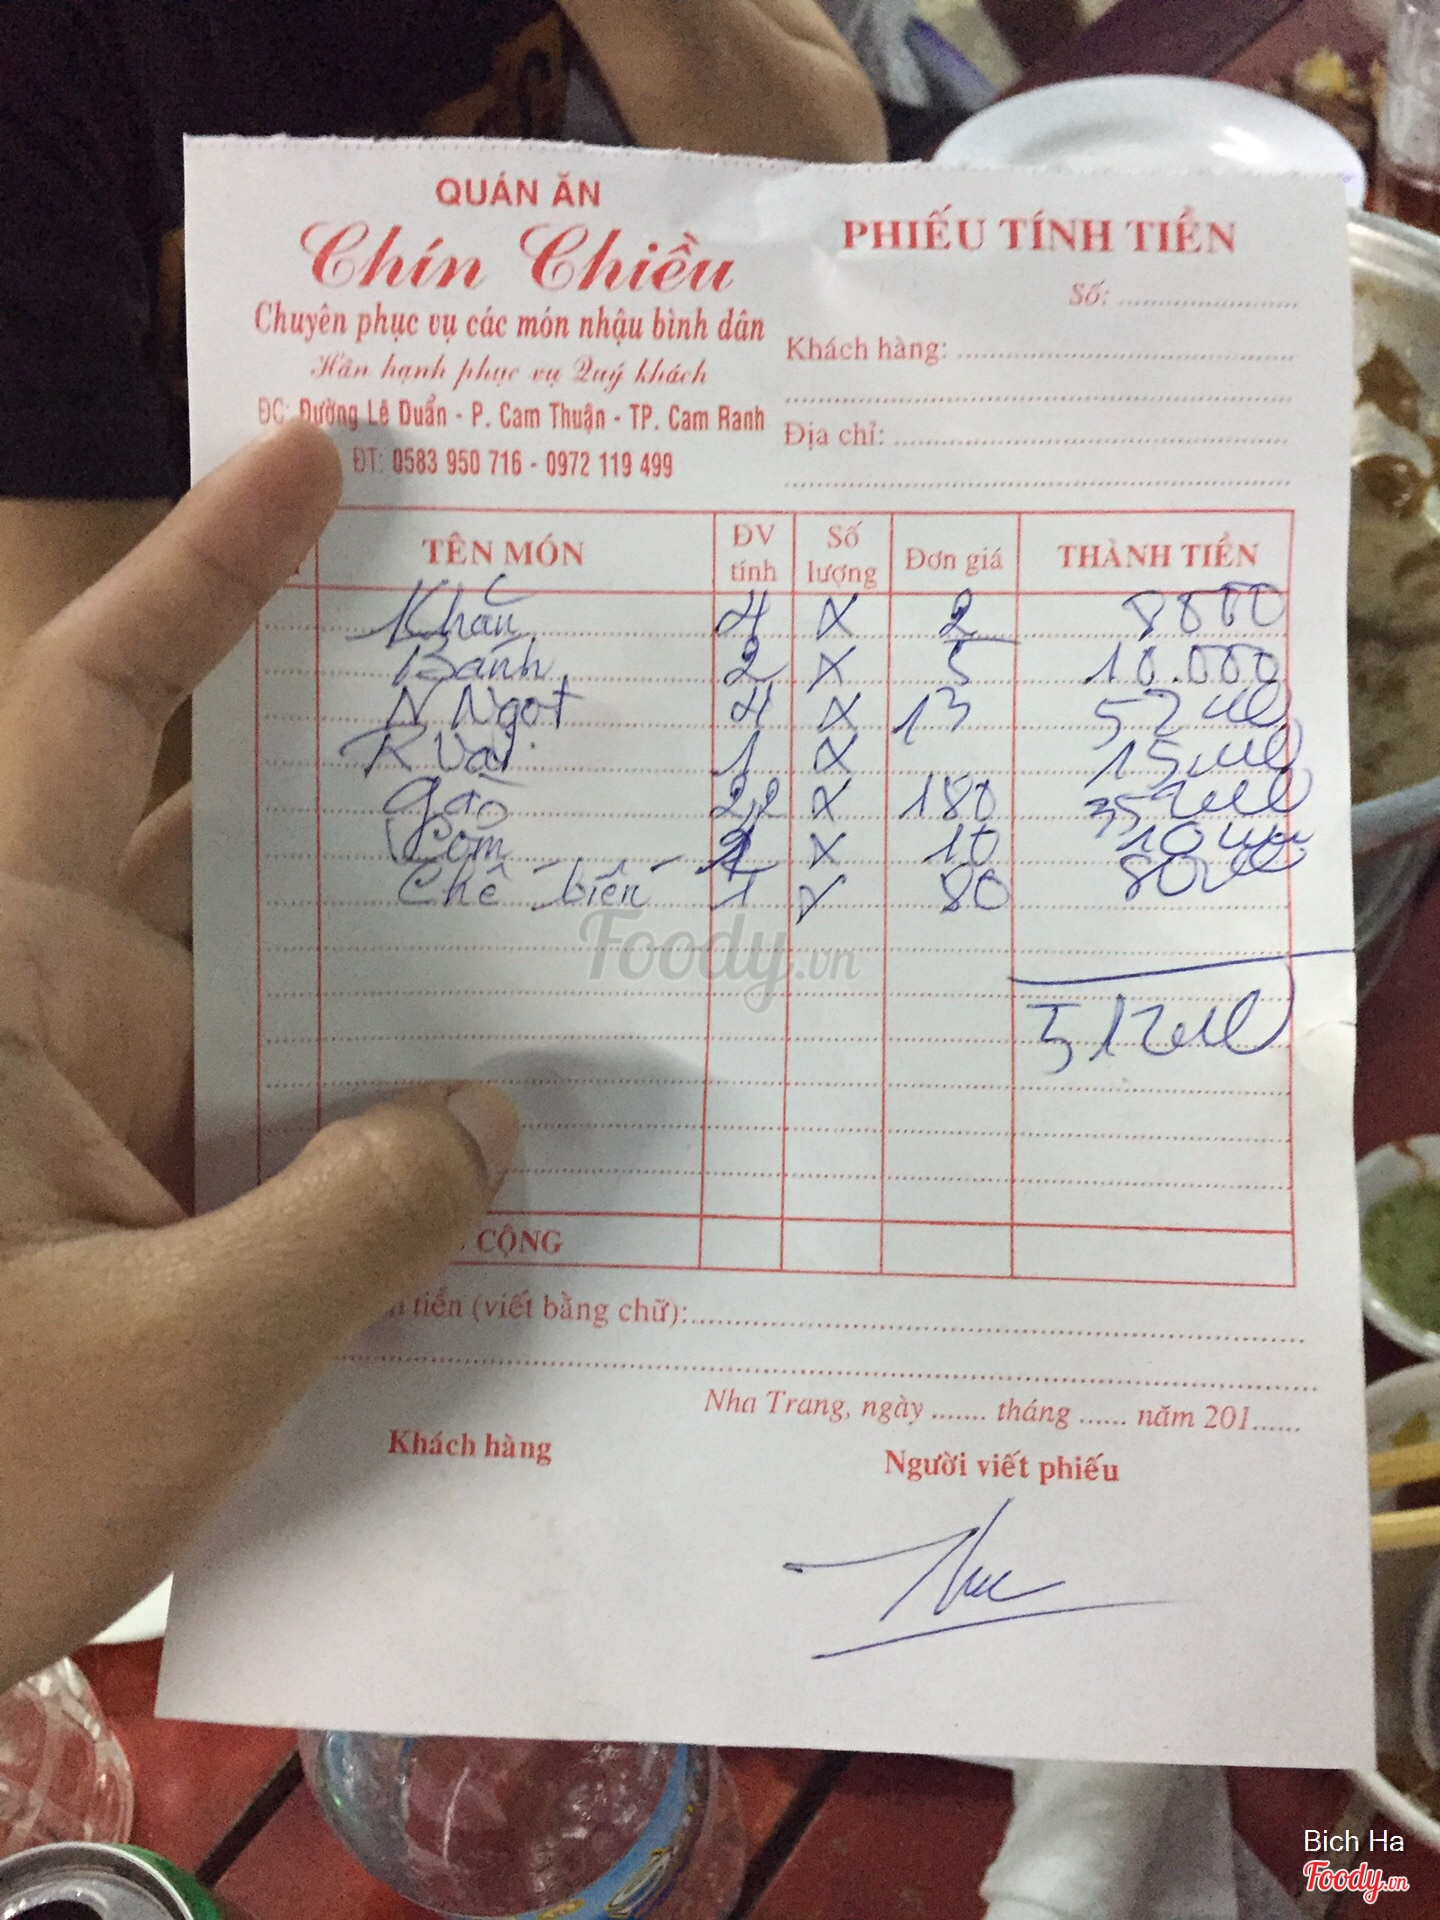 QUÁN ĂN
Chín Chiều
Chuyên phục vụ các món nhậu bình dân
Hân hạnh phục vụ Quý khách
ĐC: Đường Lê Duẩn - P. Cam Thuận - TP. Cam Ranh
ĐT: 0583 950 716 - 0972 119 499
PHIẾU TÍNH TIỀN
Số:
Khách hàng:
Địa chỉ:
TÊN MÓN ĐV tính Số lượng Đơn giá THÀNH TIỀN
Khăn 4 x 2 8000
Bánh 2 x 5 10.000
N Ngọt 4 x 13 52
1 x 15
2,2 x 180
Cơm 1 x 10 10
Chế biến 1 x 80 80
512
CỘNG
tiền (viết bằng chữ):
Nha Trang, ngày ....... tháng ...... năm 201......
Khách hàng
Người viết phiếu
Foody.vn
Bich Ha
Foody.vn